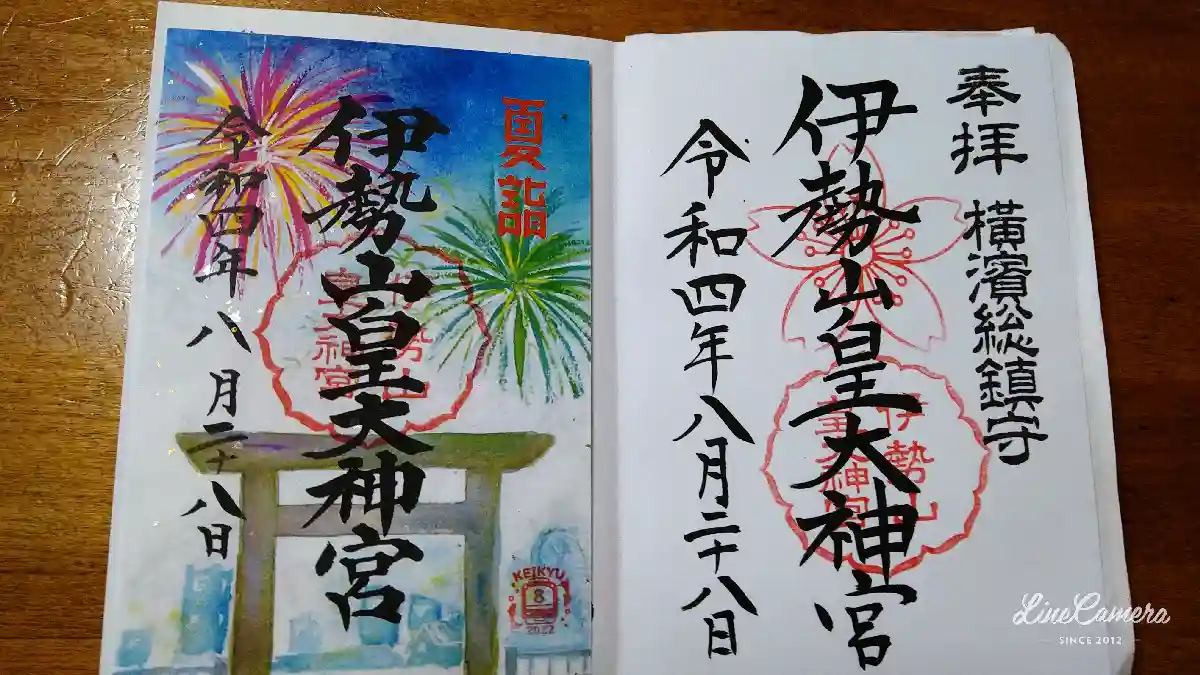 奉拝
横濱総鎮守
伊勢山皇大神宮
伊勢山
皇大神宮
令和四年八月二十八日
夏詣
伊勢山皇大神宮
伊勢山
皇大神宮
令和四年八月二十八日
KEIKYU
8
2022
LineCamera
SINCE 2012